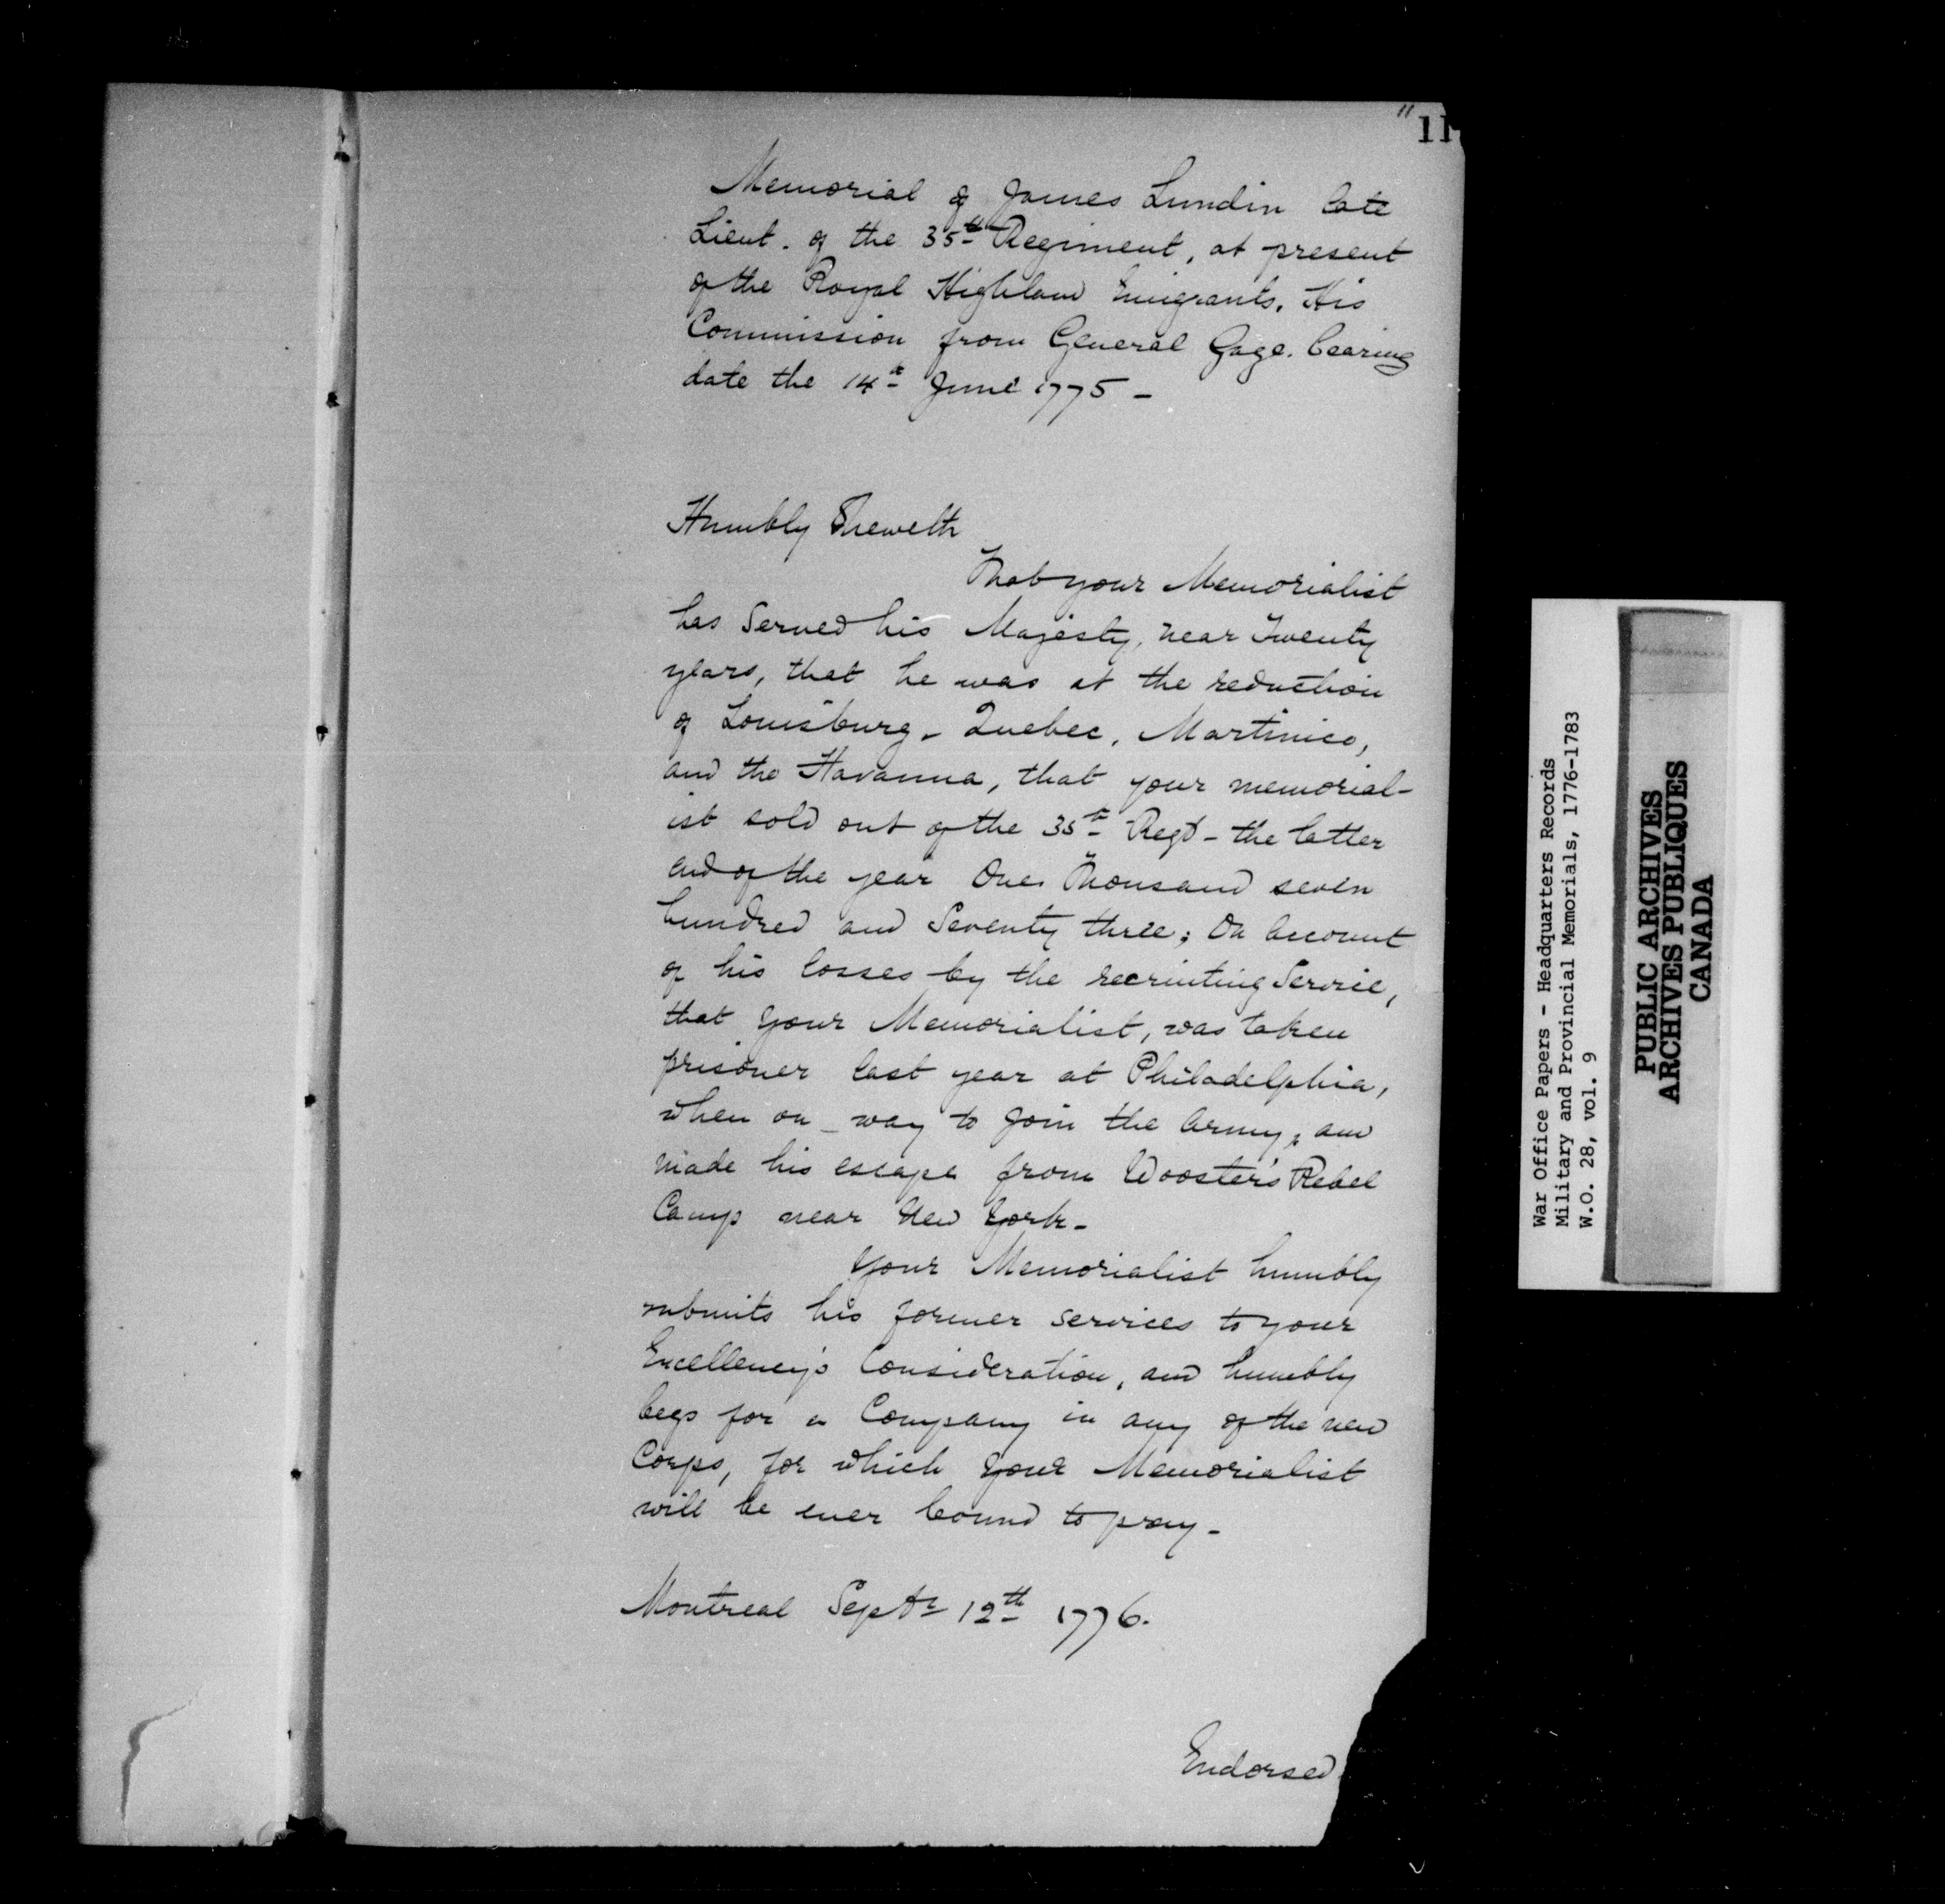 11
11
Memorial of James Lundin late
Lieut. of the 35th Regiment, at present
of the Royal Highland Emigrants, His
Commission from General Gage. bearing
date the 14th June 1775 -
Humbly Sheweth
That your Memorialist
has Served his Majesty, near Twenty
years, that he was at the reduction
of Louisburg - Quebec, Martinico,
and the Havanna, that your memorial-
ist sold out of the 35th Regt - the latter
end of the year One Thousand seven
hundred and Seventy three; On account
of his losses by the recruiting Service,
that your Memorialist, was taken
prisoner last year at Philadelphia,
when on _ way to join the Army, and
made his escape from Wooster's Rebel
Camp near New York -
Your Memorialist humbly
submits his former services to your
Excellency's Consideration, and humbly
begs for a Company in any of the new
Corps, for which your Memorialist
will be ever bound to pray -
Montreal Septr 12th 1776.
Endorsed
War Office Papers - Headquarters Records
Military and Provincial Memorials, 1776-1783
W.O. 28, vol. 9
PUBLIC ARCHIVES
ARCHIVES PUBLIQUES
CANADA